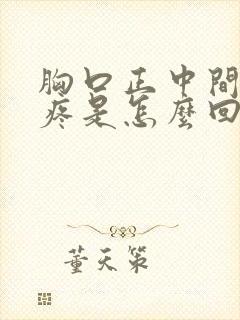 胸口正中間
疼是怎麼回
董天策